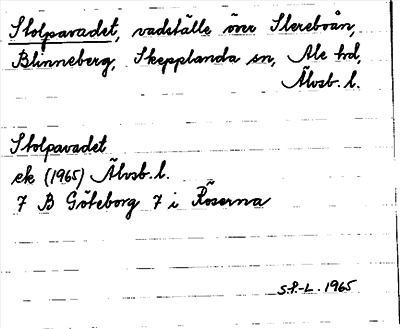 Stolpavadet, vadställe över Slereboån,
Blinneberg, Skepplanda sn, Ale hd,
Älvsb. l.
Stolpavadet
ek (1965) Älvsb. l.
7 B Göteborg 7 i Röserna
S.P.-L. 1965